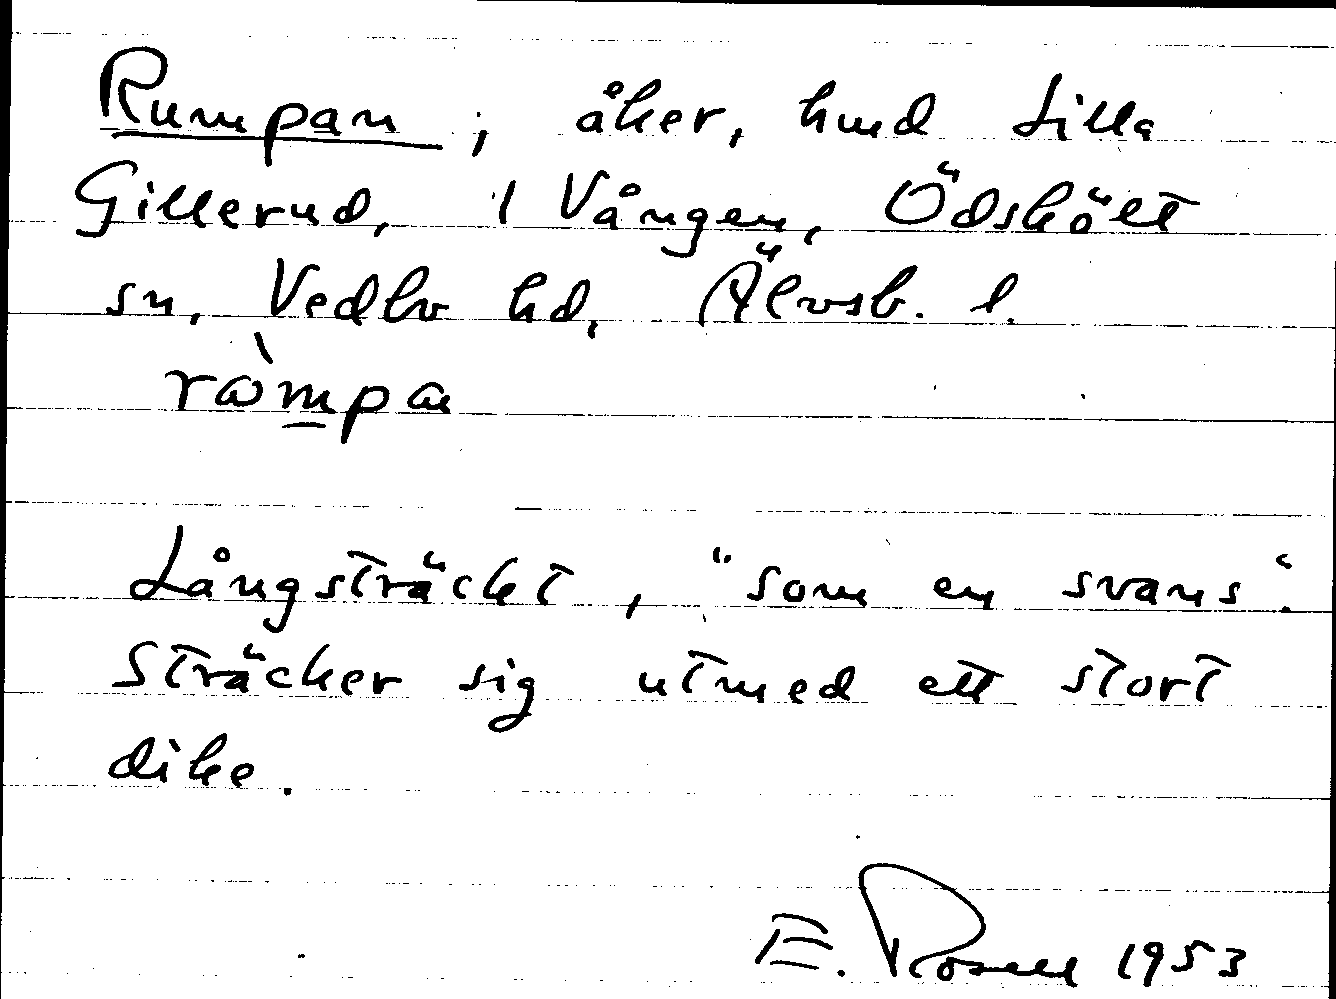 Rumpan, åker, hmd Lilla
Gillerud, 1 Vången, Ödskölt
sn, Vedbo hd, Älvsb. l.
ròmpa
Långsträckt, "som en svans".
Sträcker sig utmed ett stort
dike.
E. Rosell 1953